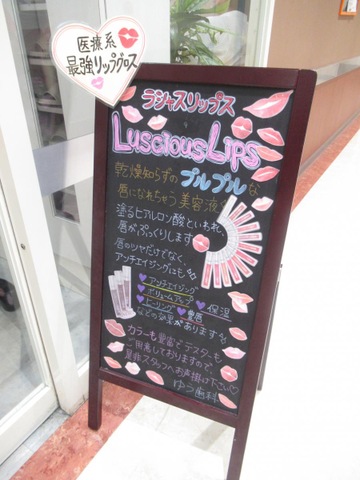 医療系
最強リップグロス
ラシャスリップス
LusciousLips
乾燥知らずのプルプルな
唇になれちゃう美容液
塗るヒアルロン酸といわれ、
唇がぷっくりします
唇のツヤだけでなく、
アンチエイジングにも
アンチエイジング
ボリュームアップ 保湿
ヒーリング
などの効果があります
カラーも豊富でテスターも
ご用意しておりますので、
是非スタッフへお声掛け下さい
ゆう歯科